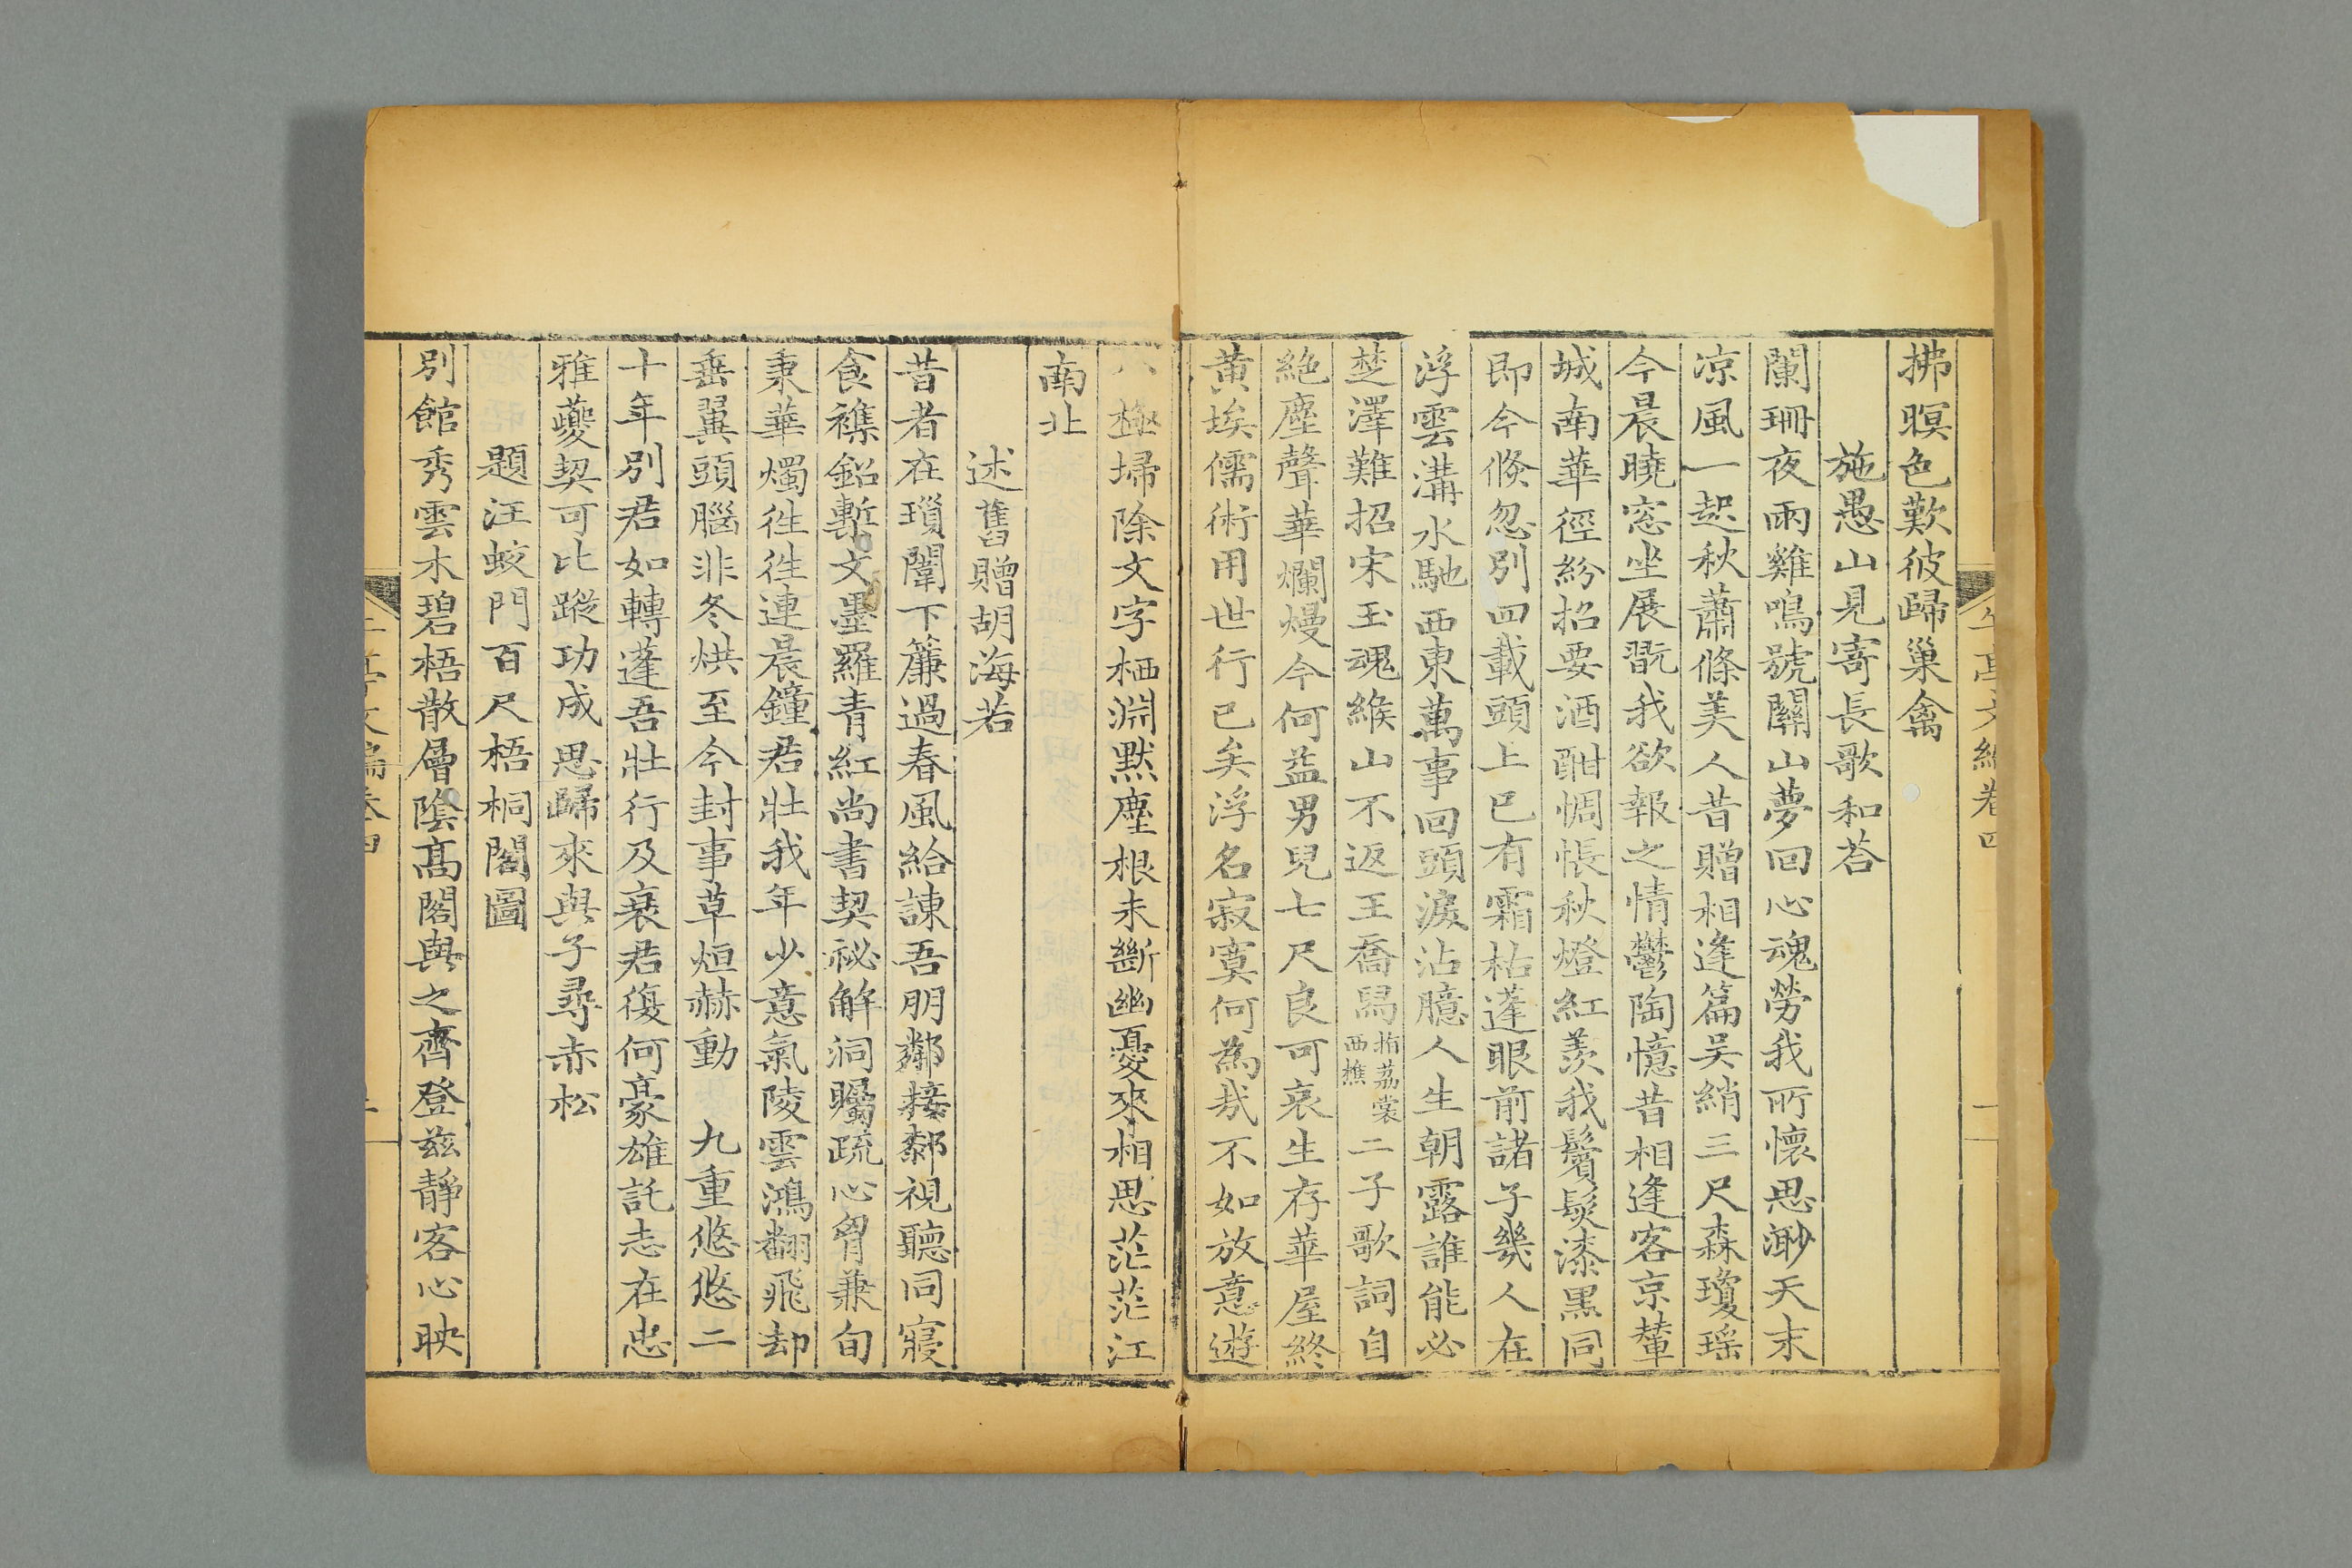 午亭文編卷四
拂暝色歎彼歸巢禽
施愚山見寄長歌和荅
闌珊夜雨雞鳴號關山夢回心魂勞我所懷思渺天末
凉風一起秋蕭條美人昔贈相逢篇吴綃三尺森瓊瑶
今晨曉窓坐展翫我欲報之情鬱陶憶昔相逢客京輦
城南華徑紛招要酒酣惆悵秋燈紅羨我鬢髮漆黒同
即今倏忽别四載頭上已有霜枯蓬眼前諸子幾人在
浮雲溝水馳西東萬事回頭淚沾臆人生朝露誰能必
楚澤難招宋玉魂緱山不返王喬舄指荔裳西樵二子歌詞自
絶塵聲華爛熳今何益男兒七尺良可哀生存華屋終
黄埃儒術用世行已矣浮名寂寞何為哉不如放意遊
八極埽除文字栖淵黙塵根未斷幽憂來相思茫茫江
南北
述舊贈胡海若
昔者在瑣闈下簾過春風給諫吾朋鄰接鄰視聽同寢
食襍鉛槧文墨羅青紅尚書契祕解洞矚疏心胷兼旬
秉華燭徃徃連晨鐘君壯我年少意氣陵雲鴻翻飛却
垂翼頭腦非冬烘至今封事草烜赫動 九重悠悠二
十年别君如轉蓬吾壯行及衰君復何豪雄託志在忠
雅夔契可比蹤功成思歸來與子尋赤松
題汪蛟門百尺梧桐閣圖
别館秀雲木碧梧散層陰髙閣與之齊登兹靜客心映